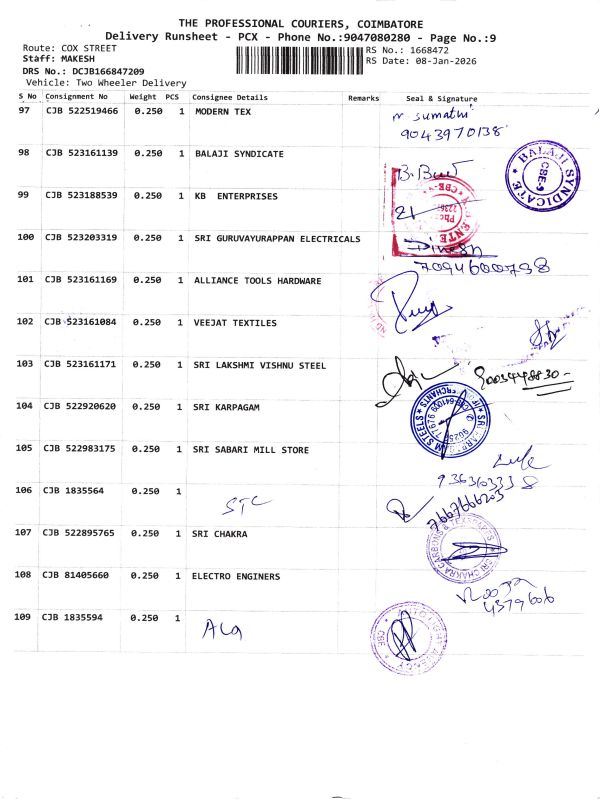 THE PROFESSIONAL COURIERS, COIMBATORE
Delivery Runsheet - PCX - Phone No.:9047080280 - Page No.:9
Route: COX STREET
RS No.: 1668472
Staff: MAKESH
RS Date: 08-Jan-2026
DRS No.: DCJB166847209
Vehicle: Two Wheeler Delivery
S No Consignment No Weight PCS Consignee Details Remarks Seal & Signature
97 CJB 522519466 0.250 1 MODERN TEX
N. Sumathi
9043970138
98 CJB 523161139 0.250 1 BALAJI SYNDICATE
BALAJI SYNDICATE
CBE-9
99 CJB 523188539 0.250 1 KB ENTERPRISES
100 CJB 523203319 0.250 1 SRI GURUVAYURAPPAN ELECTRICALS
Dinesh
7094600798
101 CJB 523161169 0.250 1 ALLIANCE TOOLS HARDWARE
102 CJB 523161084 0.250 1 VEEJAT TEXTILES
103 CJB 523161171 0.250 1 SRI LAKSHMI VISHNU STEEL
9003448830
104 CJB 522920620 0.250 1 SRI KARPAGAM
105 CJB 522983175 0.250 1 SRI SABARI MILL STORE
9363603338
106 CJB 1835564 0.250 1
STC
7667666203
107 CJB 522895765 0.250 1 SRI CHAKRA
SRI CHAKRA CARBONS & TEXSPARTS
108 CJB 81405660 0.250 1 ELECTRO ENGINERS
Pooja
4379606
109 CJB 1835594 0.250 1